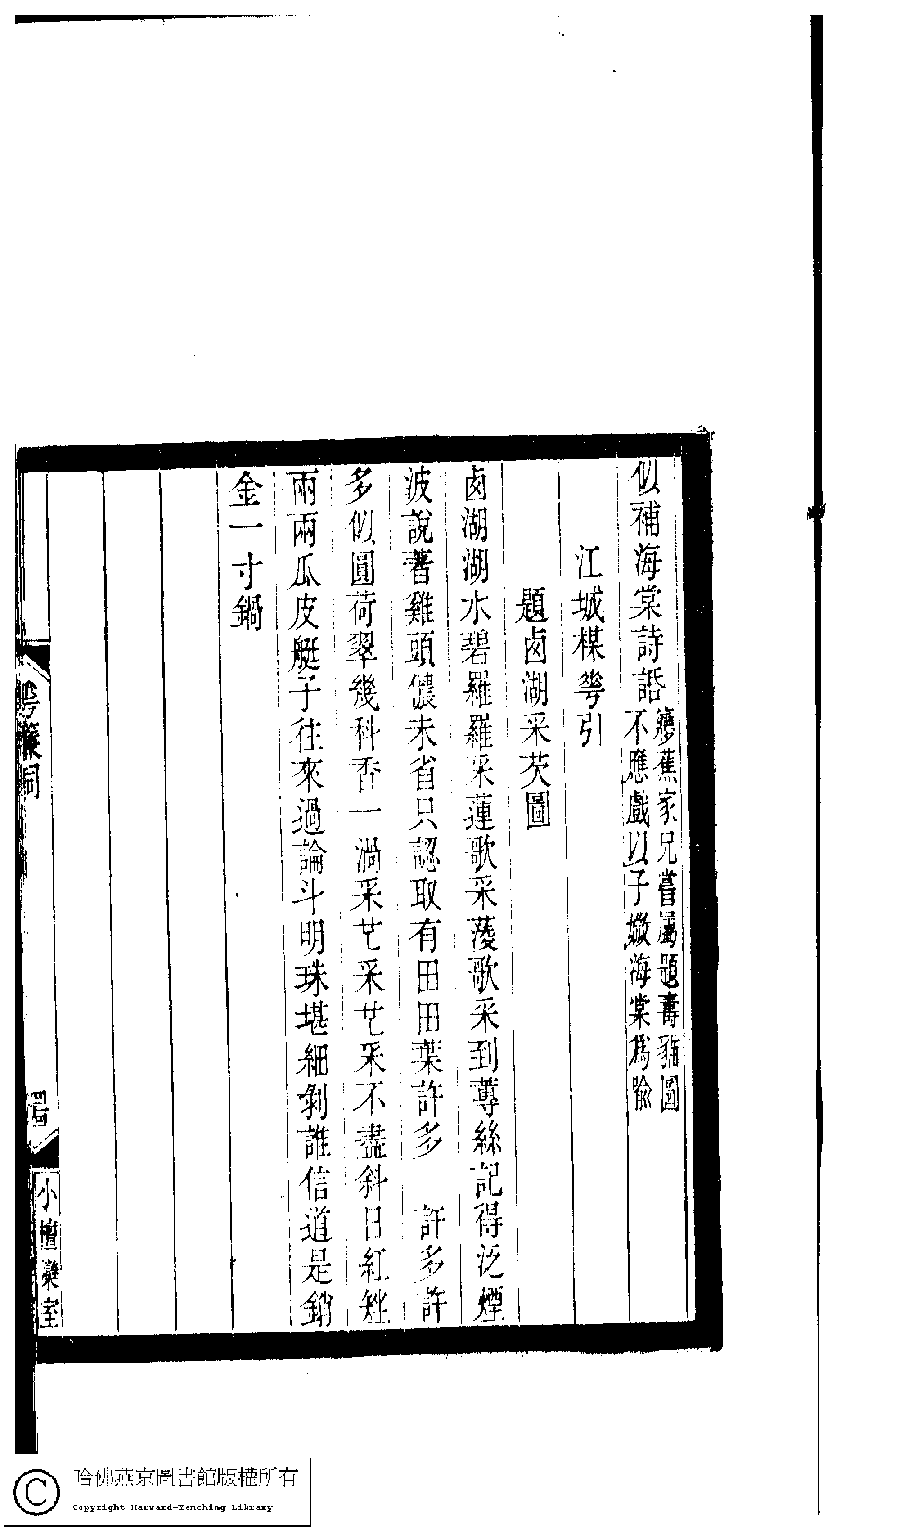 似補海棠詩話 夢蕉家兄嘗屬題壽 圖
不應戲以子 海棠爲喻
江城楳雩引
題鹵湖采芡圖
鹵湖湖水碧羅羅采蓮歌采蔆歌采到蓴絲記得泛煙
波說著雞頭儂未省只認取有田田葉許多 許多許
多似圓荷翠幾科香一渦采艺采艺采不盡斜日紅矬
兩兩瓜皮艇子往來過論斗明珠堪細剝誰信道是銷
金一寸鍋
小檀欒室
哈佛燕京圖書館版權所有
Copyright Harvard-Yenching Library